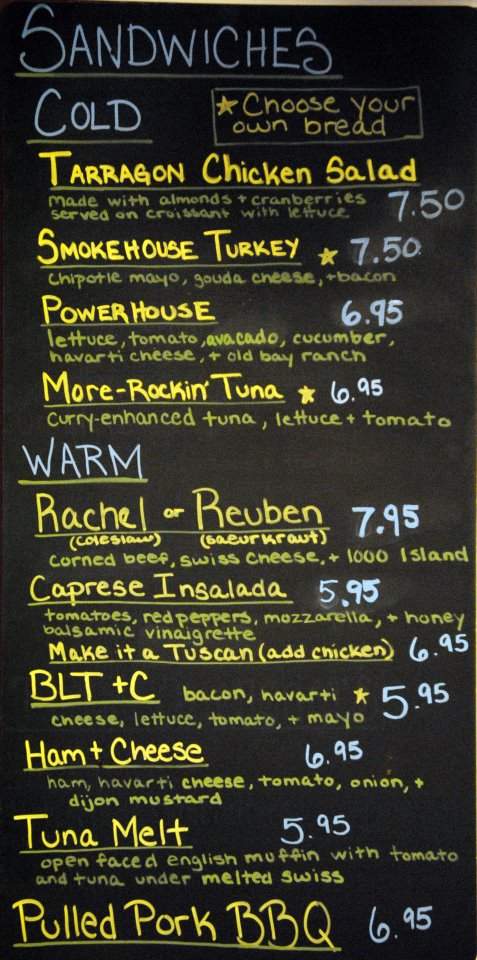 SANDWICHES
COLD
★ Choose your
own bread
TARRAGON Chicken Salad
made with almonds + cranberries
served on croissant with lettuce 7.50
SMOKEHOUSE TURKEY ★ 7.50
chipotle mayo, gouda cheese, + bacon
POWERHOUSE 6.95
lettuce, tomato, avacado, cucumber,
havarti cheese, + old bay ranch
More-Rockin' Tuna ★ 6.95
curry-enhanced tuna, lettuce + tomato
WARM
Rachel or Reuben 7.95
(coleslaw) (saeurkraut)
corned beef, swiss cheese, + 1000 Island
Caprese Insalada 5.95
tomatoes, red peppers, mozzarella, + honey
balsamic vinaigrette
Make it a Tuscan (add chicken) 6.95
BLT + C bacon, havarti ★ 5.95
cheese, lettuce, tomato, + mayo
Ham + Cheese 6.95
ham, havarti cheese, tomato, onion, +
dijon mustard
Tuna Melt 5.95
open faced english muffin with tomato
and tuna under melted swiss
Pulled Pork BBQ 6.95